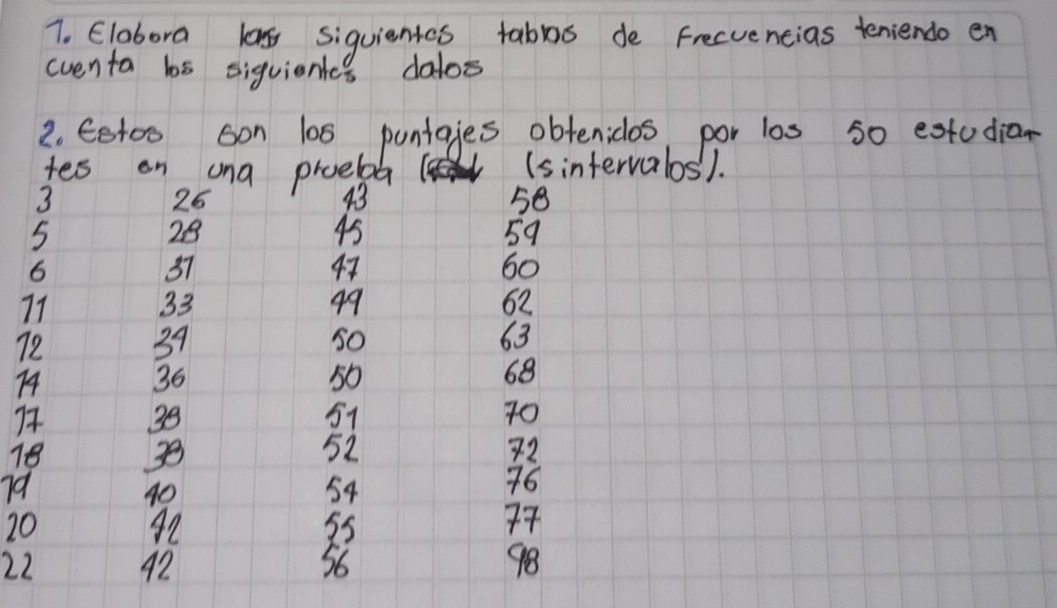 1. Elabora las siguientes tablas de frecuencias teniendo en
cuenta los siguientes datos
2. Estos son los puntajes obtenidos por los 50 estudian
tes en una prueba (5 intervalos).
3 26 43 58
5 28 45 59
6 31 47 60
11 33 49 62
12 34 50 63
14 36 50 68
17 38 51 70
18 38 52 72
19 40 54 76
20 42 55 77
22 42 56 98